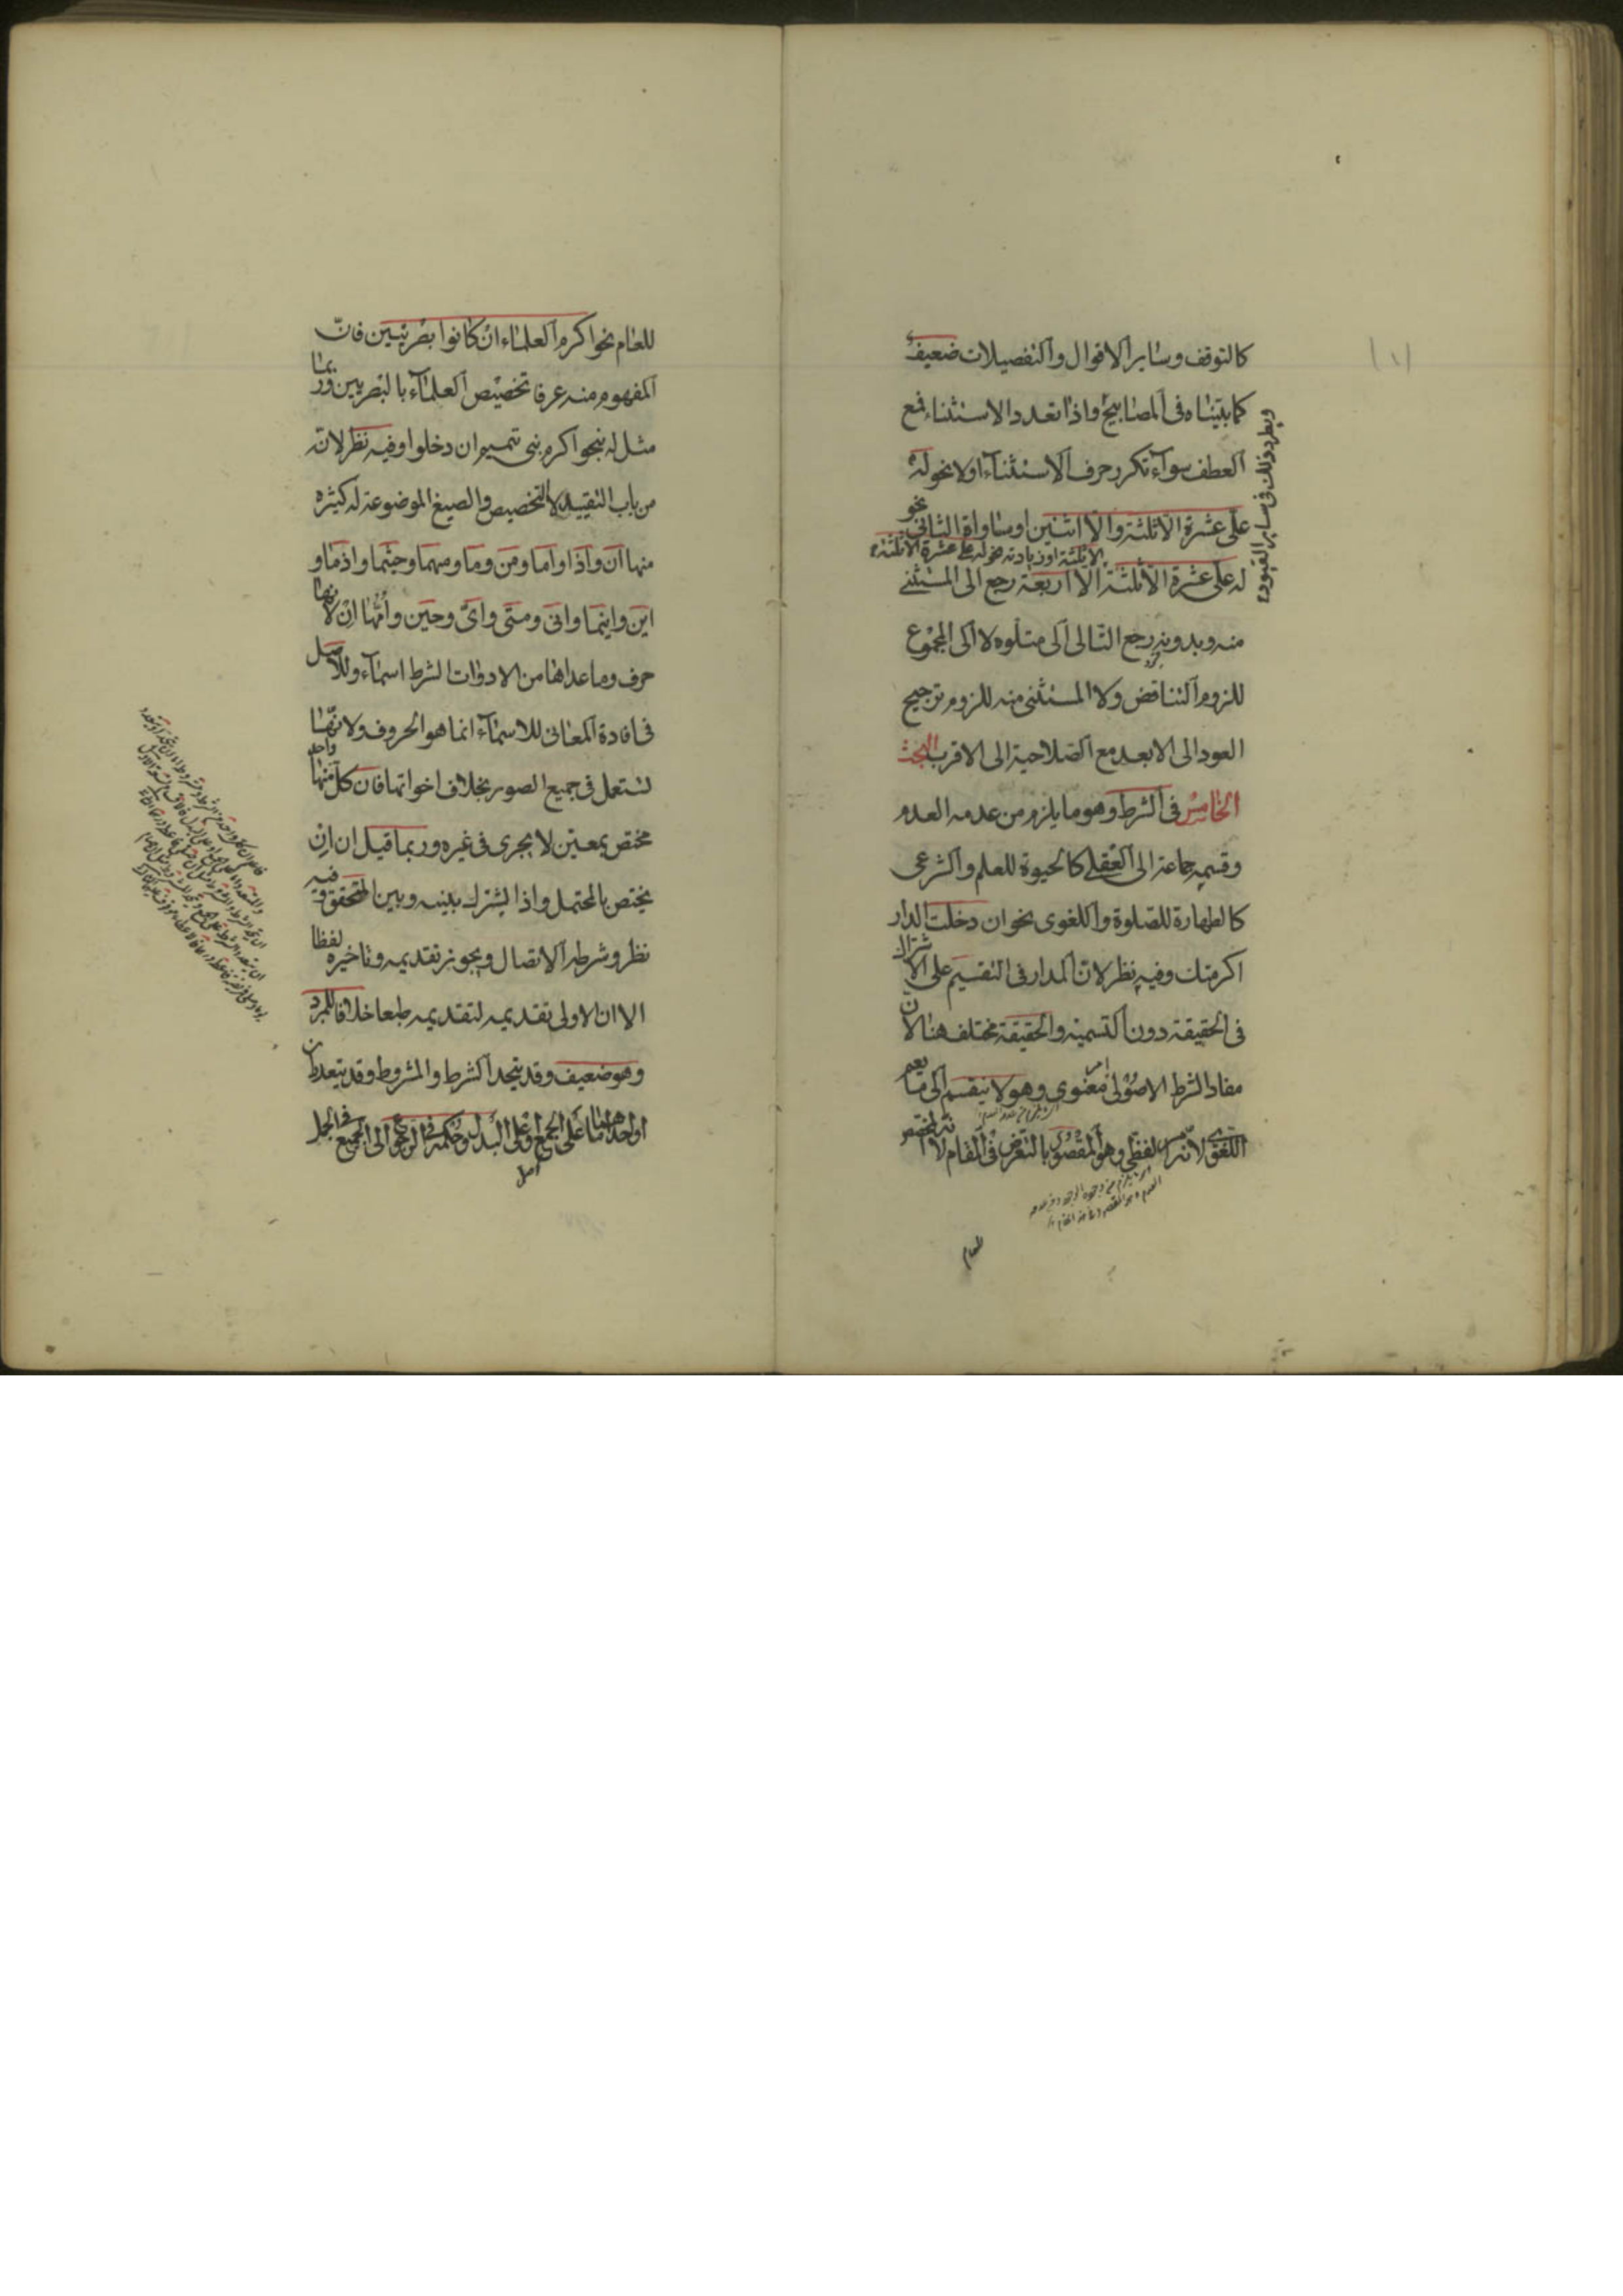 كالتوقف وساير الاقوال والتفصيلات ضعيف
كما بيناه فى المصابيح واذا تعدد الاستثناء فمع
العطف سواء تكرر حرف الاستثناء اولا نحو له
على عشرة الا ثلثة والا اثنين او مساواة الثانى نحو
الا ثلثة او زيادته نحو له على عشرة الا ثلثة
له على عشرة الا ثلثة الا اربعة رجع الى المستثنى
منه وبدونه رجع التالى الى متلوه لا الى المجموع
للزوم التناقض ولا المستثنى منه للزوم ترجيح
العود الى الابعد مع الصلاحية الى الاقرب البحث
الخامس فى الشرط وهو ما يلزم من عدمه العدم
وقسمه جماعة الى العقلى كالحيوة للعلم والشرعى
كالطهارة للصلوة واللغوى نحو ان دخلت الدار
اكرمتك وفيه نظر لان المدار فى التقسيم على الاشتراك
فى الحقيقة دون التسمية والحقيقة مختلف هنا لان
مفاد الشرط الاصولى امر معنوى وهو لا ينقسم الى ما يعم
اللغوى لانه امر لفظى وهو المقصود بالتعرض فى المقام لانه المخصص
ويطرد ذلك فى ساير القيود
للعام
للعام نحو اكرم العلماء ان كانوا بصريين فان
المفهوم منه عرفا تخصيص العلماء بالبصريين وربما
مثل له بنحو اكرم بنى تميم ان دخلوا وفيه نظر لانه
من باب التقييد لا التخصيص والصيغ الموضوعة له كثيرة
منها ان واذا واما ومن وما ومهما وحيثما واذما و
اين واينما وانى ومتى واى وحين وامها ان لانها
حرف وما عداها من الادوات الشرط اسماء وللاصل
فى افادة المعانى للاسماء انما هو الحروف ولانها
تستعمل فى جميع الصور بخلاف اخواتها فان كل واحد منها
مختص بمعين لا يجرى فى غيره وربما قيل ان ان
يختص بالمحتمل واذا يشترك بينه وبين المتحقق وفيه
نظر وشرطه الاتصال ويجوز تقديمه وتاخيره لفظا
الا ان الاولى تقديمه لتقديمه طبعا خلافا للمبرد
وهو ضعيف وقد يتحد الشرط والمشروط وقد يتعددان
او احدهما اما على الجمع او على البدل وحكمه فى الرجوع الى الجميع فى الجمل